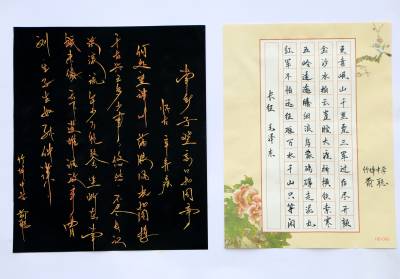 何处望神州 满眼风光北固楼
千古兴亡多少事 悠悠 不尽长江
滚滚流 年少万兜鍪 坐断东南
战未休 天下英雄谁敌手 曹
刘 生子当如孙仲谋
长征 毛泽东
红军不怕远征难万水千山只等闲
五岭逶迤腾细浪乌蒙磅礴走泥丸
金沙水拍云崖暖大渡桥横铁索寒
更喜岷山千里雪三军过后尽开颜